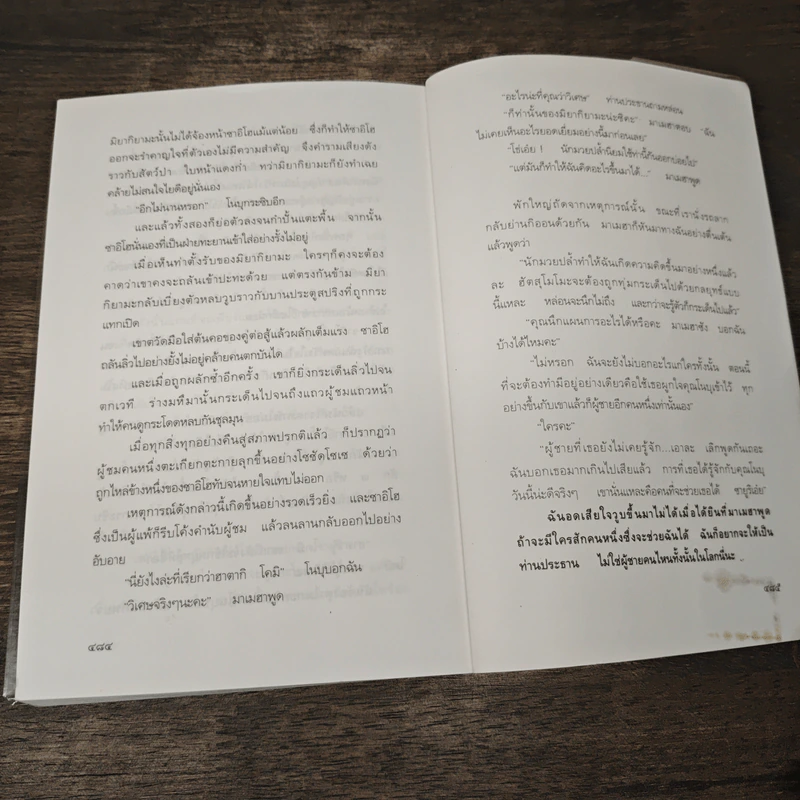 มิยากิยามะนั้นไม่ได้จ้องหน้าซาอิโฮแม้แต่น้อย ซึ่งก็ทำให้ซาอิโฮ
ออกจะรำคาญใจที่ตัวเองไม่มีความสำคัญ จึงคำรามเสียงดัง
ราวกับสัตว์ป่า ใบหน้าแดงก่ำ ทว่ามิยากิยามะก็ยังทำเฉย
คล้ายไม่สนใจไยดีอยู่นั่นเอง
"อีกไม่นานหรอก" โนบุกระซิบอีก
และแล้วทั้งสองก็ย่อตัวลงจนกำปั้นแตะพื้น จากนั้น
ซาอิโฮนั่นเองที่เป็นฝ่ายทะยานเข้าใส่อย่างรั้งไม่อยู่
เมื่อเห็นท่าตั้งรับของมิยากิยามะ ใครๆก็คงจะต้อง
คาดว่าเขาคงจะถลันเข้าปะทะด้วย แต่ตรงกันข้าม มิยา
กิยามะกลับเบี่ยงตัวหลบวูบราวกับบานประตูสปริงที่ถูกกระ
แทกเปิด
เขาตวัดมือใส่ต้นคอของคู่ต่อสู้แล้วผลักเต็มแรง ซาอิโฮ
ถลันลิ่วไปอย่างยั้งไม่อยู่คล้ายคนตกบันได
และเมื่อถูกผลักซ้ำอีกครั้ง เขาก็ยิ่งกระเด็นลิ่วไปจน
ตกเวที ร่างมหึมานั้นกระเด็นไปจนถึงแถวผู้ชมแถวหน้า
ทำให้คนดูกระโดดหลบกันชุลมุน
เมื่อทุกสิ่งทุกอย่างคืนสู่สภาพปรกติแล้ว ก็ปรากฏว่า
ผู้ชมคนหนึ่งตะเกียกตะกายลุกขึ้นอย่างโซซัดโซเซ ด้วยว่า
ถูกไหล่ข้างหนึ่งของซาอิโฮทับจนหายใจแทบไม่ออก
เหตุการณ์ดังกล่าวนี้เกิดขึ้นอย่างรวดเร็วยิ่ง และซาอิโฮ
ซึ่งเป็นผู้แพ้ก็รีบโค้งคำนับผู้ชม แล้วลนลานกลับออกไปอย่าง
อับอาย
"นี่ยังไงล่ะที่เรียกว่าฮาตากิ โคมิ" โนบุบอกฉัน
"วิเศษจริงๆนะคะ" มาเมฮาพูด
๔๘๔
"อะไรน่ะที่คุณว่าวิเศษ" ท่านประธานถามหล่อน
"ก็ท่านั้นของมิยากิยามะน่ะซิคะ" มาเมฮาตอบ "ฉัน
ไม่เคยเห็นอะไรยอดเยี่ยมอย่างนี้มาก่อนเลย"
"โธ่เอ๋ย ! นักมวยปล้ำนิยมใช้ท่านี้กันออกบ่อยไป"
"แต่มันก็ทำให้ฉันคิดอะไรขึ้นมาได้..." มาเมฮาพูด
พักใหญ่ถัดจากเหตุการณ์นั้น ขณะที่เรานั่งรถลาก
กลับย่านกิออนด้วยกัน มาเมฮาก็หันมาทางฉันอย่างตื่นเต้น
แล้วพูดว่า
"นักมวยปล้ำทำให้ฉันเกิดความคิดขึ้นมาอย่างหนึ่งแล้ว
ละ ฮัตสุโมโมะจะต้องถูกทุ่มกระเด็นไปด้วยกลยุทธ์แบบ
นี้แหละ หล่อนจะนึกไม่ถึง และกว่าจะรู้ตัวก็กระเด็นไปแล้ว"
"คุณนึกแผนการอะไรได้หรือคะ มาเมฮาซัง บอกฉัน
บ้างได้ไหมคะ"
"ไม่หรอก ฉันจะยังไม่บอกอะไรแก่ใครทั้งนั้น ตอนนี้
ที่จะต้องทำมีอยู่อย่างเดียวคือใช้เธอผูกใจคุณโนบุเข้าไว้ ทุก
อย่างขึ้นกับเขาแล้วก็ผู้ชายอีกคนหนึ่งเท่านั้นเอง"
"ใครคะ"
"ผู้ชายที่เธอยังไม่เคยรู้จัก...เอาละ เลิกพูดกันเถอะ
ฉันบอกเธอมากเกินไปเสียแล้ว การที่เธอได้รู้จักกับคุณโนบุ
วันนี้น่ะดีจริงๆ เขานั่นแหละคือคนที่จะช่วยเธอได้ ซายูริเอ๋ย"
ฉันอดเสียใจวูบขึ้นมาไม่ได้เมื่อได้ยินที่มาเมฮาพูด
ถ้าจะมีใครสักคนหนึ่งซึ่งจะช่วยฉันได้ ฉันก็อยากจะให้เป็น
ท่านประธาน ไม่ใช่ผู้ชายคนไหนทั้งนั้นในโลกนี้นะ
๔๘๕